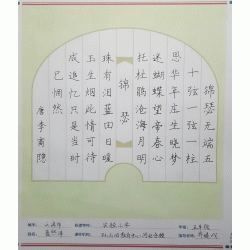 锦瑟无端五
十弦一弦一柱
思华年庄生晓梦
迷蝴蝶望帝春心
托杜鹃沧海月明
锦瑟
珠有泪蓝田日暖
玉生烟此情可待
成追忆只是当时
已惘然
唐李商隐